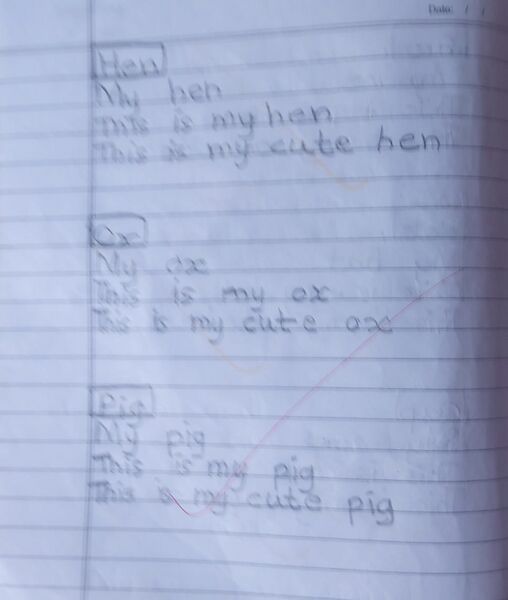 Date: / /
Hen
My hen
This is my hen
This is my cute hen
Ox
My ox
This is my ox
This is my cute ox
Pig
My pig
This is my pig
This is my cute pig